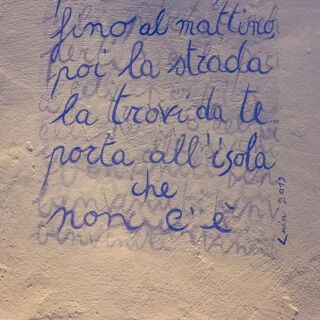 fino al mattino,
poi la strada
la trovi da te
porta all'isola
che
non c'è
Luca 2017